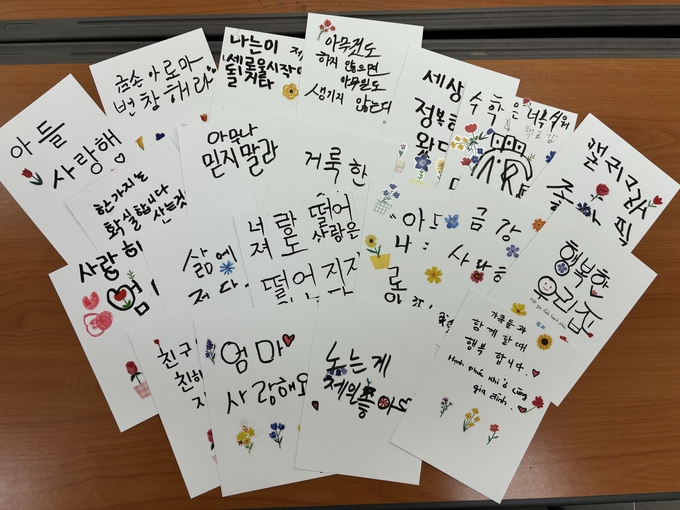 금손 아로마
번창해라
나는이
아무것도
하지 않으면
아무일도
생기지 않는다
세상
정복하
왔다
수학은 너무 쉬워
아들
사랑해
한가지는
확실합니다
사는것
아무나
믿지말라
거룩한
캘리그라피
좋아
사랑해
엄
삶에
저다
너랑 떨어
져도 사랑은
떨어지지
"아
나
금강
사랑해
행복한
우리집
친구
친해
지
엄마
사랑해요
노는게
제일좋아
가족들과
함께할때
행복합니다.
Hạnh phúc khi ở cùng
gia đình.